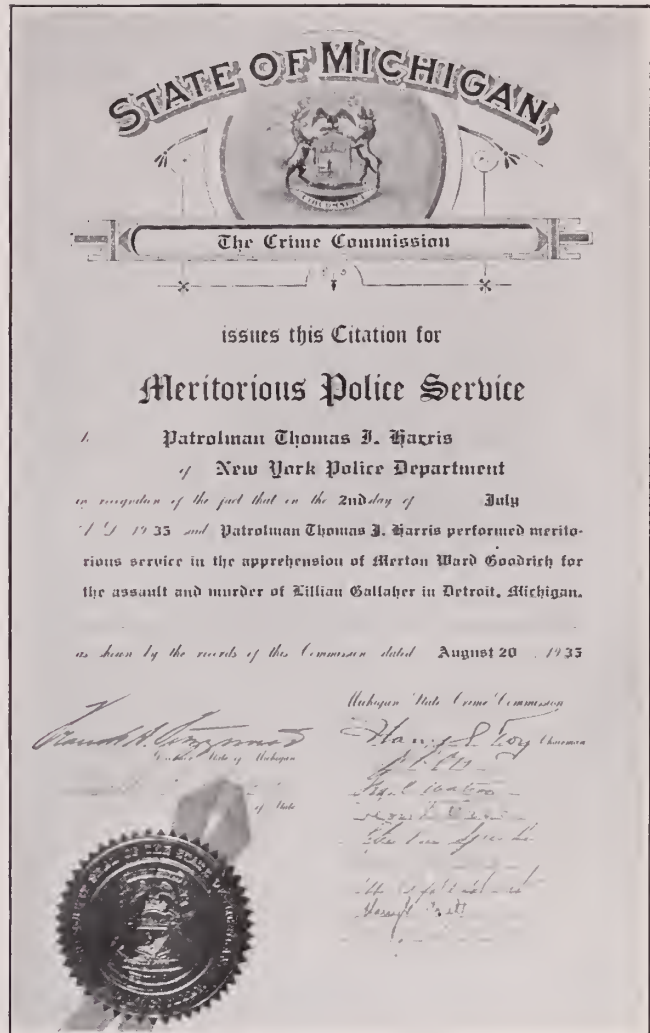 STATE OF MICHIGAN,
The Crime Commission
issues this Citation for
Meritorious Police Service
Patrolman Thomas J. Harris
of New York Police Department
in recognition of the fact that on the 2nd day of July
1935 and Patrolman Thomas J. Harris performed merito-
rious service in the apprehension of Merton Ward Goodrich for
the assault and murder of Lillian Gallaher in Detroit, Michigan.
as shown by the records of this Commission dated August 20, 1935
Michigan State Crime Commission
Chairman
State of Michigan
of State